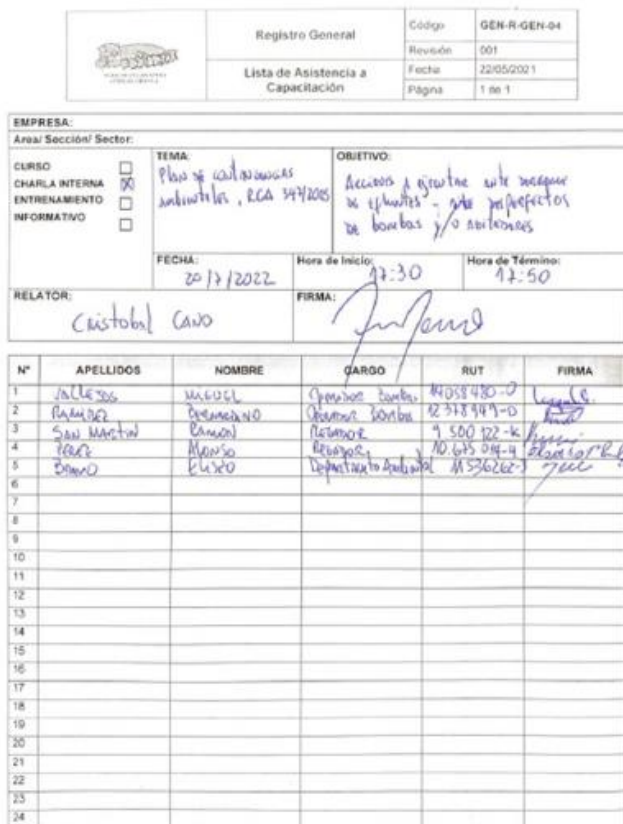 Registro General
Código GEN-R-GEN-04
Revisión 001
Lista de Asistencia a
Capacitación
Fecha 22/05/2021
Página 1 de 1
EMPRESA:
Area/ Sección/ Sector:
CURSO
CHARLA INTERNA
ENTRENAMIENTO
INFORMATIVO
TEMA:
Plan de contingencias
ambientales, RCA 347/2005
OBJETIVO:
Acciones a ejecutar ante
de efluentes - ante desperfectos
de bombas y/o
FECHA:
20/7/2022
Hora de Inicio:
17:30
Hora de Término:
17:50
RELATOR:
Cristobal CANO
FIRMA:
N° APELLIDOS NOMBRE CARGO RUT FIRMA
1 VALLEJOS MIGUEL Operador Bomba 14058480-0
2 RAMIREZ Operador Bomba 12378949-0
3 SAN MARTIN RAMON REGADOR 9 500 122-K
4 PEREZ ALONSO REGADOR
5 BRAVO ELISEO Departamento Ambiental
6
7
8
9
10
11
12
13
14
15
16
17
18
19
20
21
22
23
24